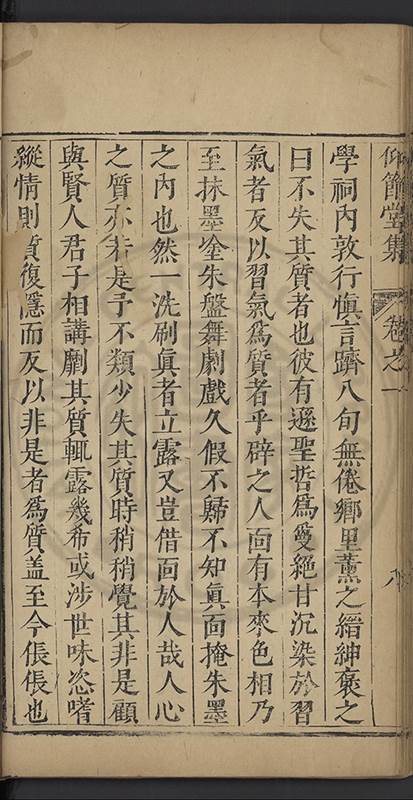 仰節堂集 卷之一 八
學祠內敦行愼言躋八旬無倦鄉里薰之縉紳褒之
曰不失其質者也彼有遜聖哲爲敻絶甘沉染於習
氣者反以習氣爲質者乎辟之人面有本來色相乃
至抹墨塗朱盤舞劇戲久假不歸不知眞面掩朱墨
之內也然一洗刷眞者立露又豈借面於人哉人心
之質亦若是予不類少失其質時稍稍覺其非是顧
與賢人君子相講劘其質輒露幾希或涉世味恣嗜
縱情則質復隱而反以非是者爲質盖至今倀倀也